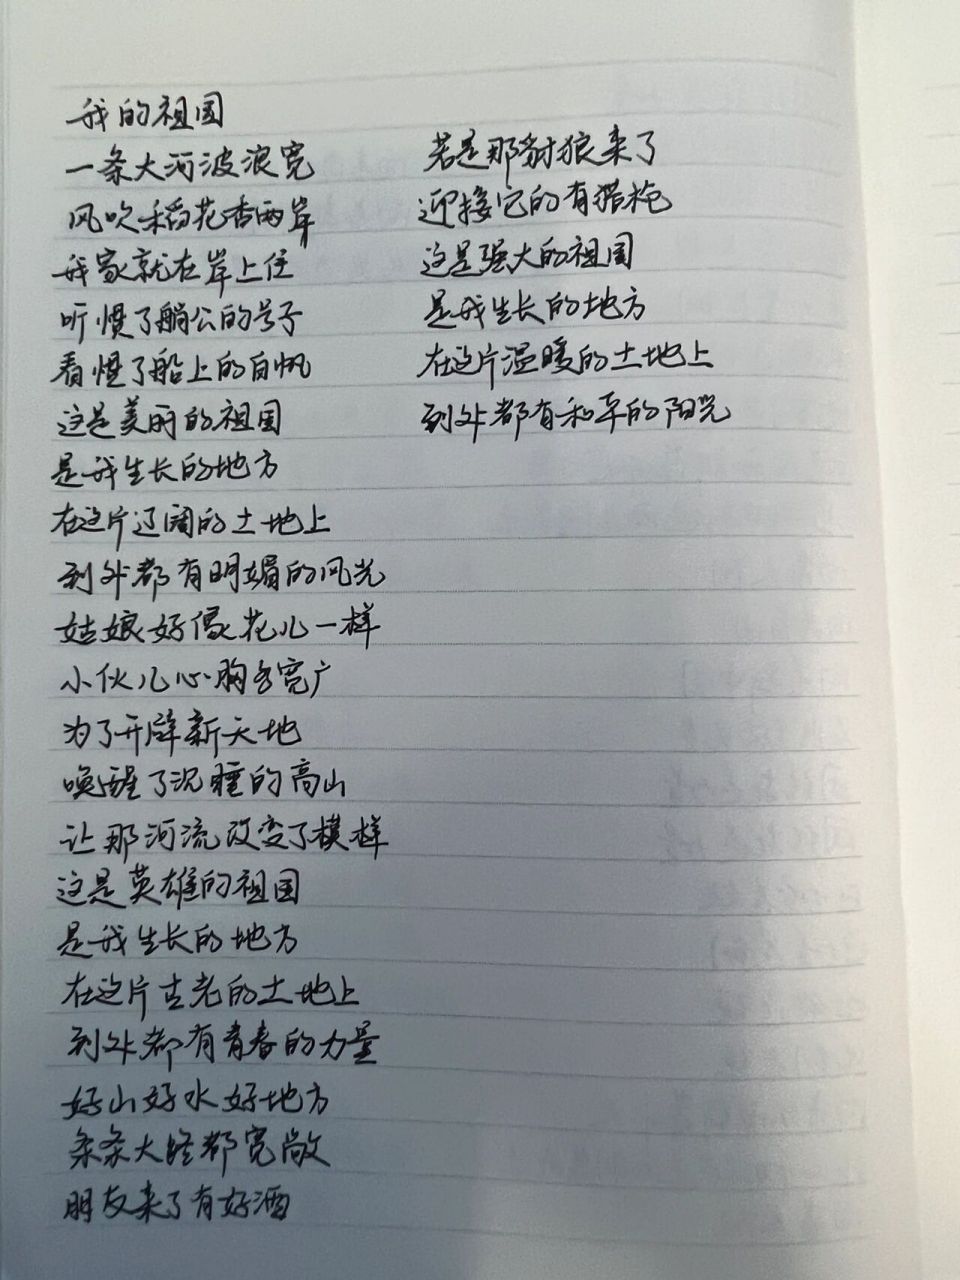 我的祖国
一条大河波浪宽
风吹稻花香两岸
我家就在岸上住
听惯了艄公的号子
看惯了船上的白帆
这是美丽的祖国
是我生长的地方
在这片辽阔的土地上
到处都有明媚的风光
姑娘好像花儿一样
小伙儿心胸多宽广
为了开辟新天地
唤醒了沉睡的高山
让那河流改变了模样
这是英雄的祖国
是我生长的地方
在这片古老的土地上
到处都有青春的力量
好山好水好地方
条条大路都宽敞
朋友来了有好酒
若是那豺狼来了
迎接它的有猎枪
这是强大的祖国
是我生长的地方
在这片温暖的土地上
到处都有和平的阳光